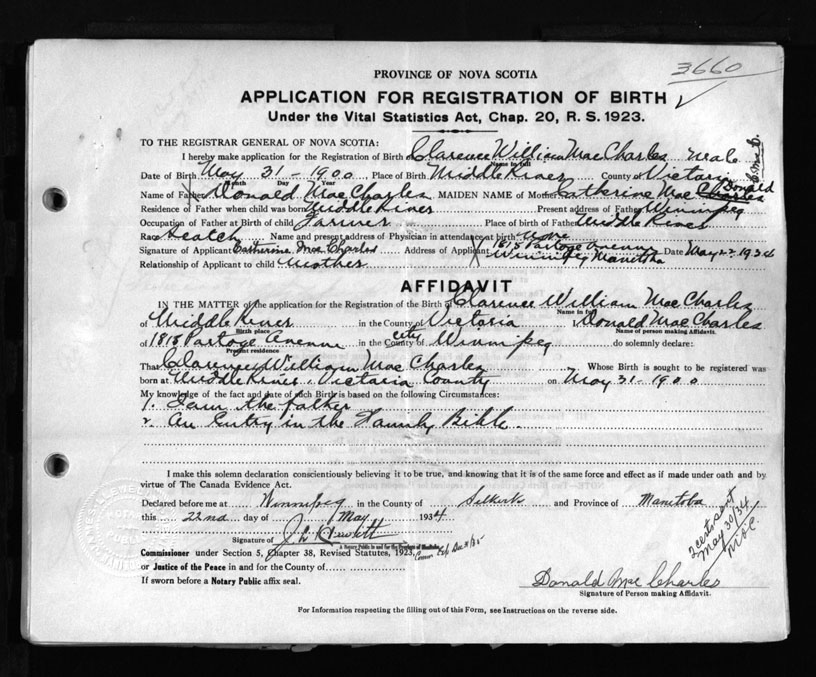 3660
PROVINCE OF NOVA SCOTIA
APPLICATION FOR REGISTRATION OF BIRTH ✓
Under the Vital Statistics Act, Chap. 20, R. S. 1923.
TO THE REGISTRAR GENERAL OF NOVA SCOTIA:
I hereby make application for the Registration of Birth of Clarence William MacCharles Male
Name in full
Date of Birth May 31 - 1900 Place of Birth Middle River County of Victoria
Month Day Year
Name of Father Donald MacCharles MAIDEN NAME of Mother Catherine Mac Charles Donald
Residence of Father when child was born Middle River Present address of Father Winnipeg
Occupation of Father at Birth of child Farmer Place of birth of Father Middle River
Race Scotch Name and present address of Physician in attendance at birth None
Signature of Applicant Catherine MacCharles Address of Applicant 1815 Portage Avenue Winnipeg Manitoba Date May 22 1934
Relationship of Applicant to child Mother
AFFIDAVIT
IN THE MATTER of the application for the Registration of the Birth of Clarence William MacCharles
Name in full
of Middle River in the County of Victoria I, Donald MacCharles
Birth place Name of person making Affidavit.
of 1815 Portage Avenue in the County of city Winnipeg do solemnly declare:
Present residence
That Clarence William MacCharles Whose Birth is sought to be registered was
born at Middle River, Victoria County on May 31 - 1900
My knowledge of the fact and date of such Birth is based on the following Circumstances:
1. I am the father
2. An Entry in the Family Bible.
I make this solemn declaration conscientiously believing it to be true, and knowing that it is of the same force and effect as if made under oath and by
virtue of The Canada Evidence Act.
Declared before me at Winnipeg in the County of Selkirk and Province of Manitoba
this 22nd day of May 1934
Signature of
A Notary Public in and for the Province of Manitoba
Commissioner under Section 5, Chapter 38, Revised Statutes, 1923,
or Justice of the Peace in and for the County of
If sworn before a Notary Public affix seal.
2 certs sent
May 30/34
Donald MacCharles
Signature of Person making Affidavit.
For Information respecting the filling out of this Form, see Instructions on the reverse side.